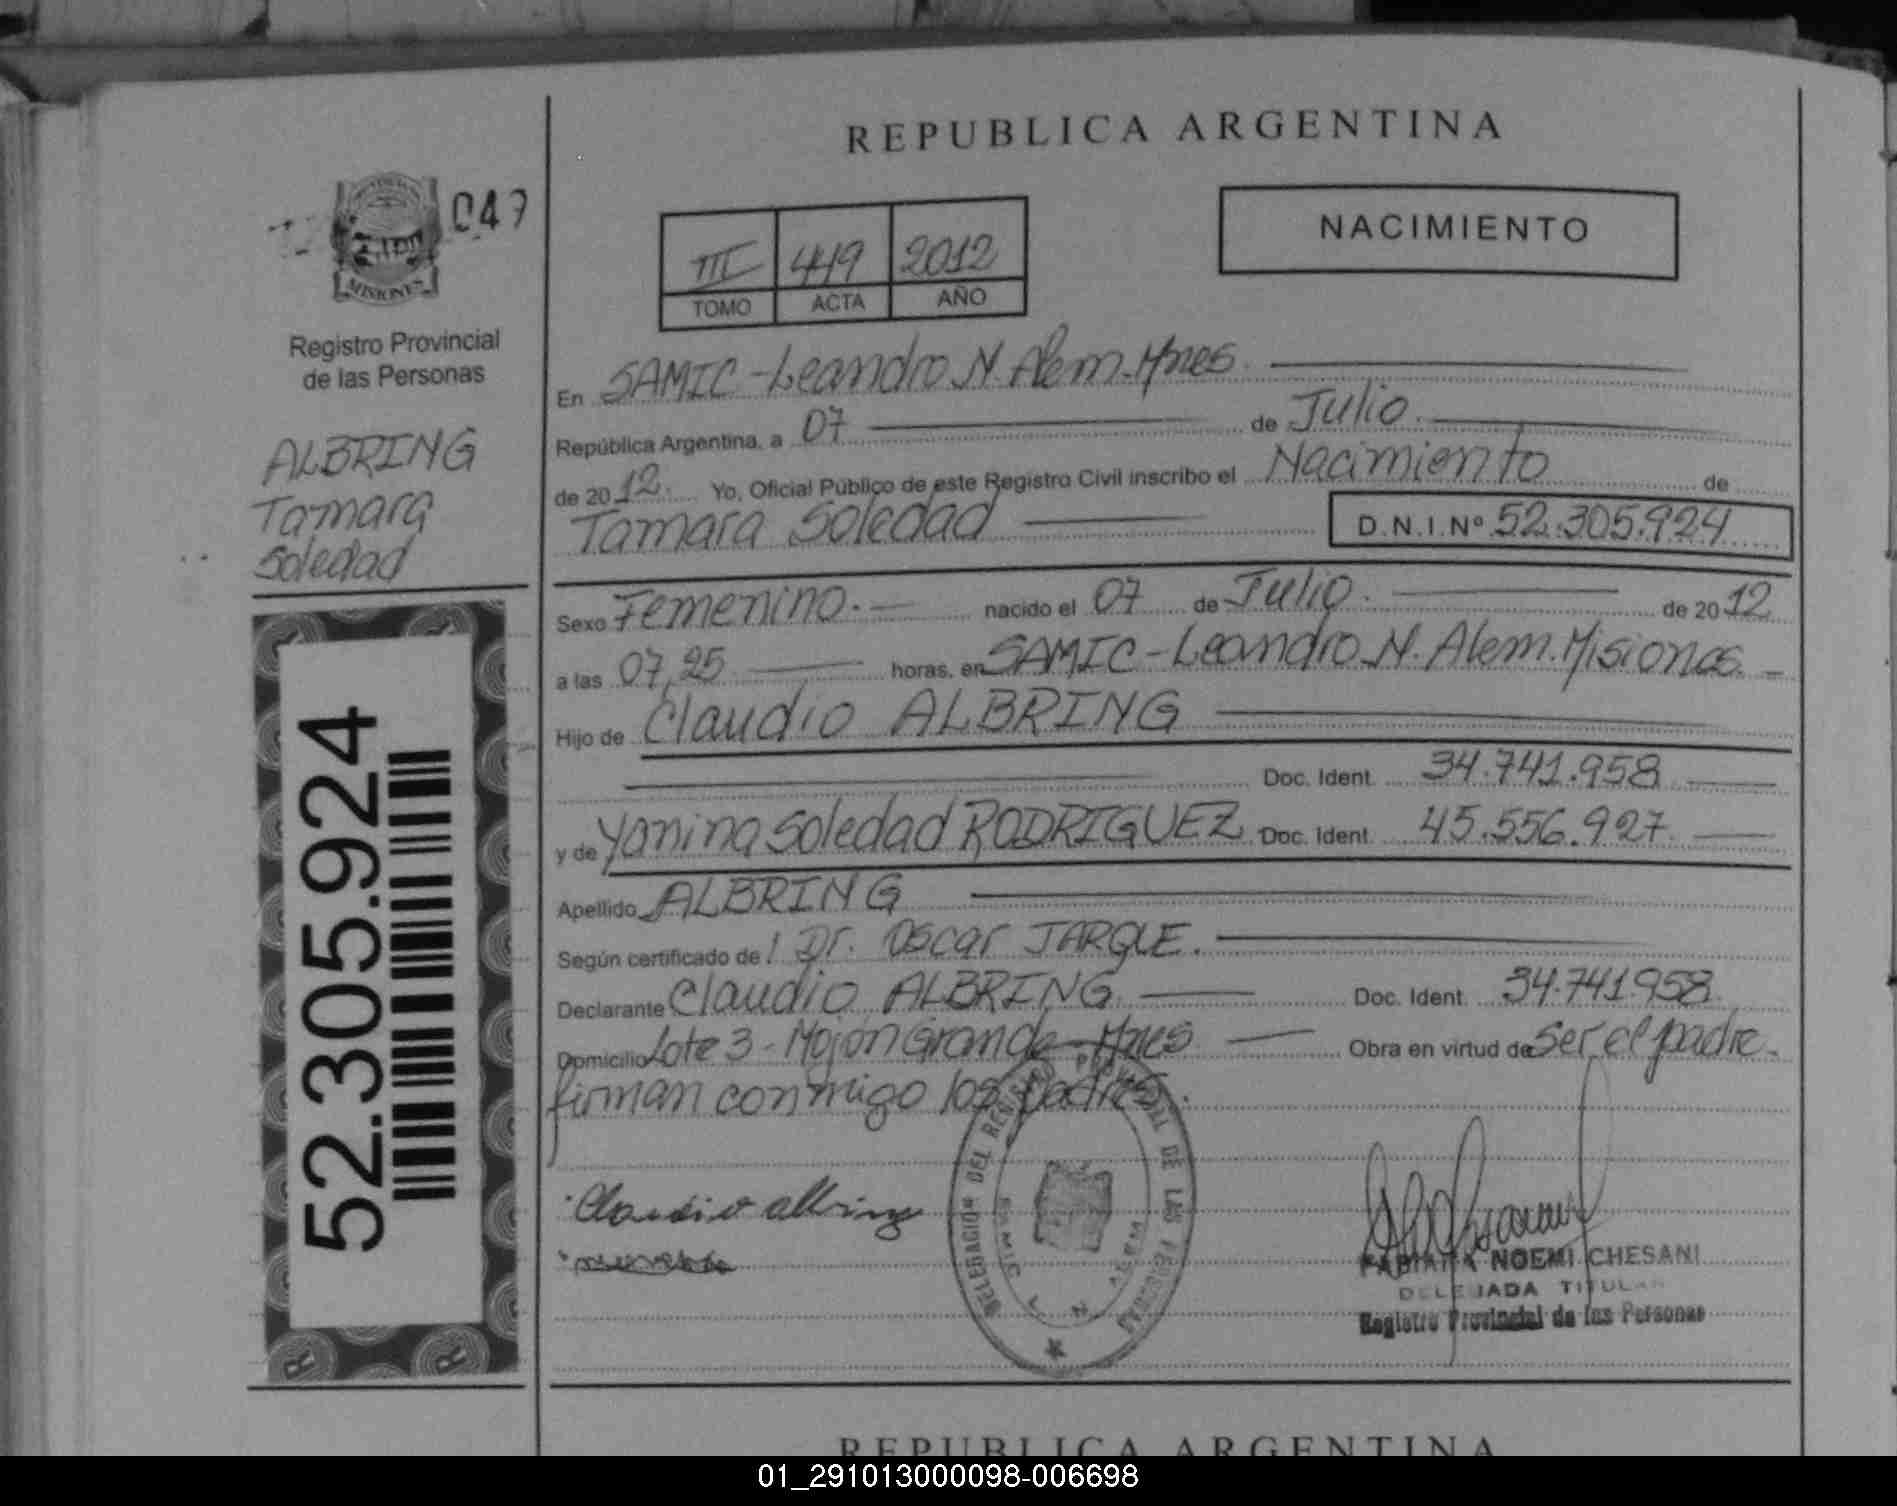 REPUBLICA ARGENTINA
047
NACIMIENTO
III 449 2012
TOMO ACTA AÑO
MISIONES
Registro Provincial
de las Personas
ALBRING
Tamara
Soledad
En SAMIC - Leandro N. Alem. Mnes.
República Argentina, a 07 de Julio.
de 2012. Yo, Oficial Público de este Registro Civil inscribo el Nacimiento de
Tamara Soledad D.N.I.Nº 52.305.924
Sexo Femenino. nacido el 07 de Julio. de 2012
a las 07,25 horas, en SAMIC - Leandro N. Alem. Misiones.
Hijo de Claudio ALBRING
Doc. Ident. 34.741.958
y de Yanina Soledad RODRIGUEZ Doc. Ident. 45.556.927.
Apellido ALBRING
Según certificado de Dr. Oscar JARQUE.
Declarante Claudio ALBRING Doc. Ident. 34.741.958
Domicilio Lote 3 - Mojón Grande - Mnes Obra en virtud de ser el padre.
firman conmigo los padres.
52.305.924
Claudio albring
DELEGACION DEL REGISTRO PROVINCIAL DE LAS PERSONAS
SAMIC L N ALEM
FABIANA NOEMI CHESANI
DELEGADA TITULAR
Registro Provincial de las Personas
REPUBLICA ARGENTINA
01_291013000098-006698